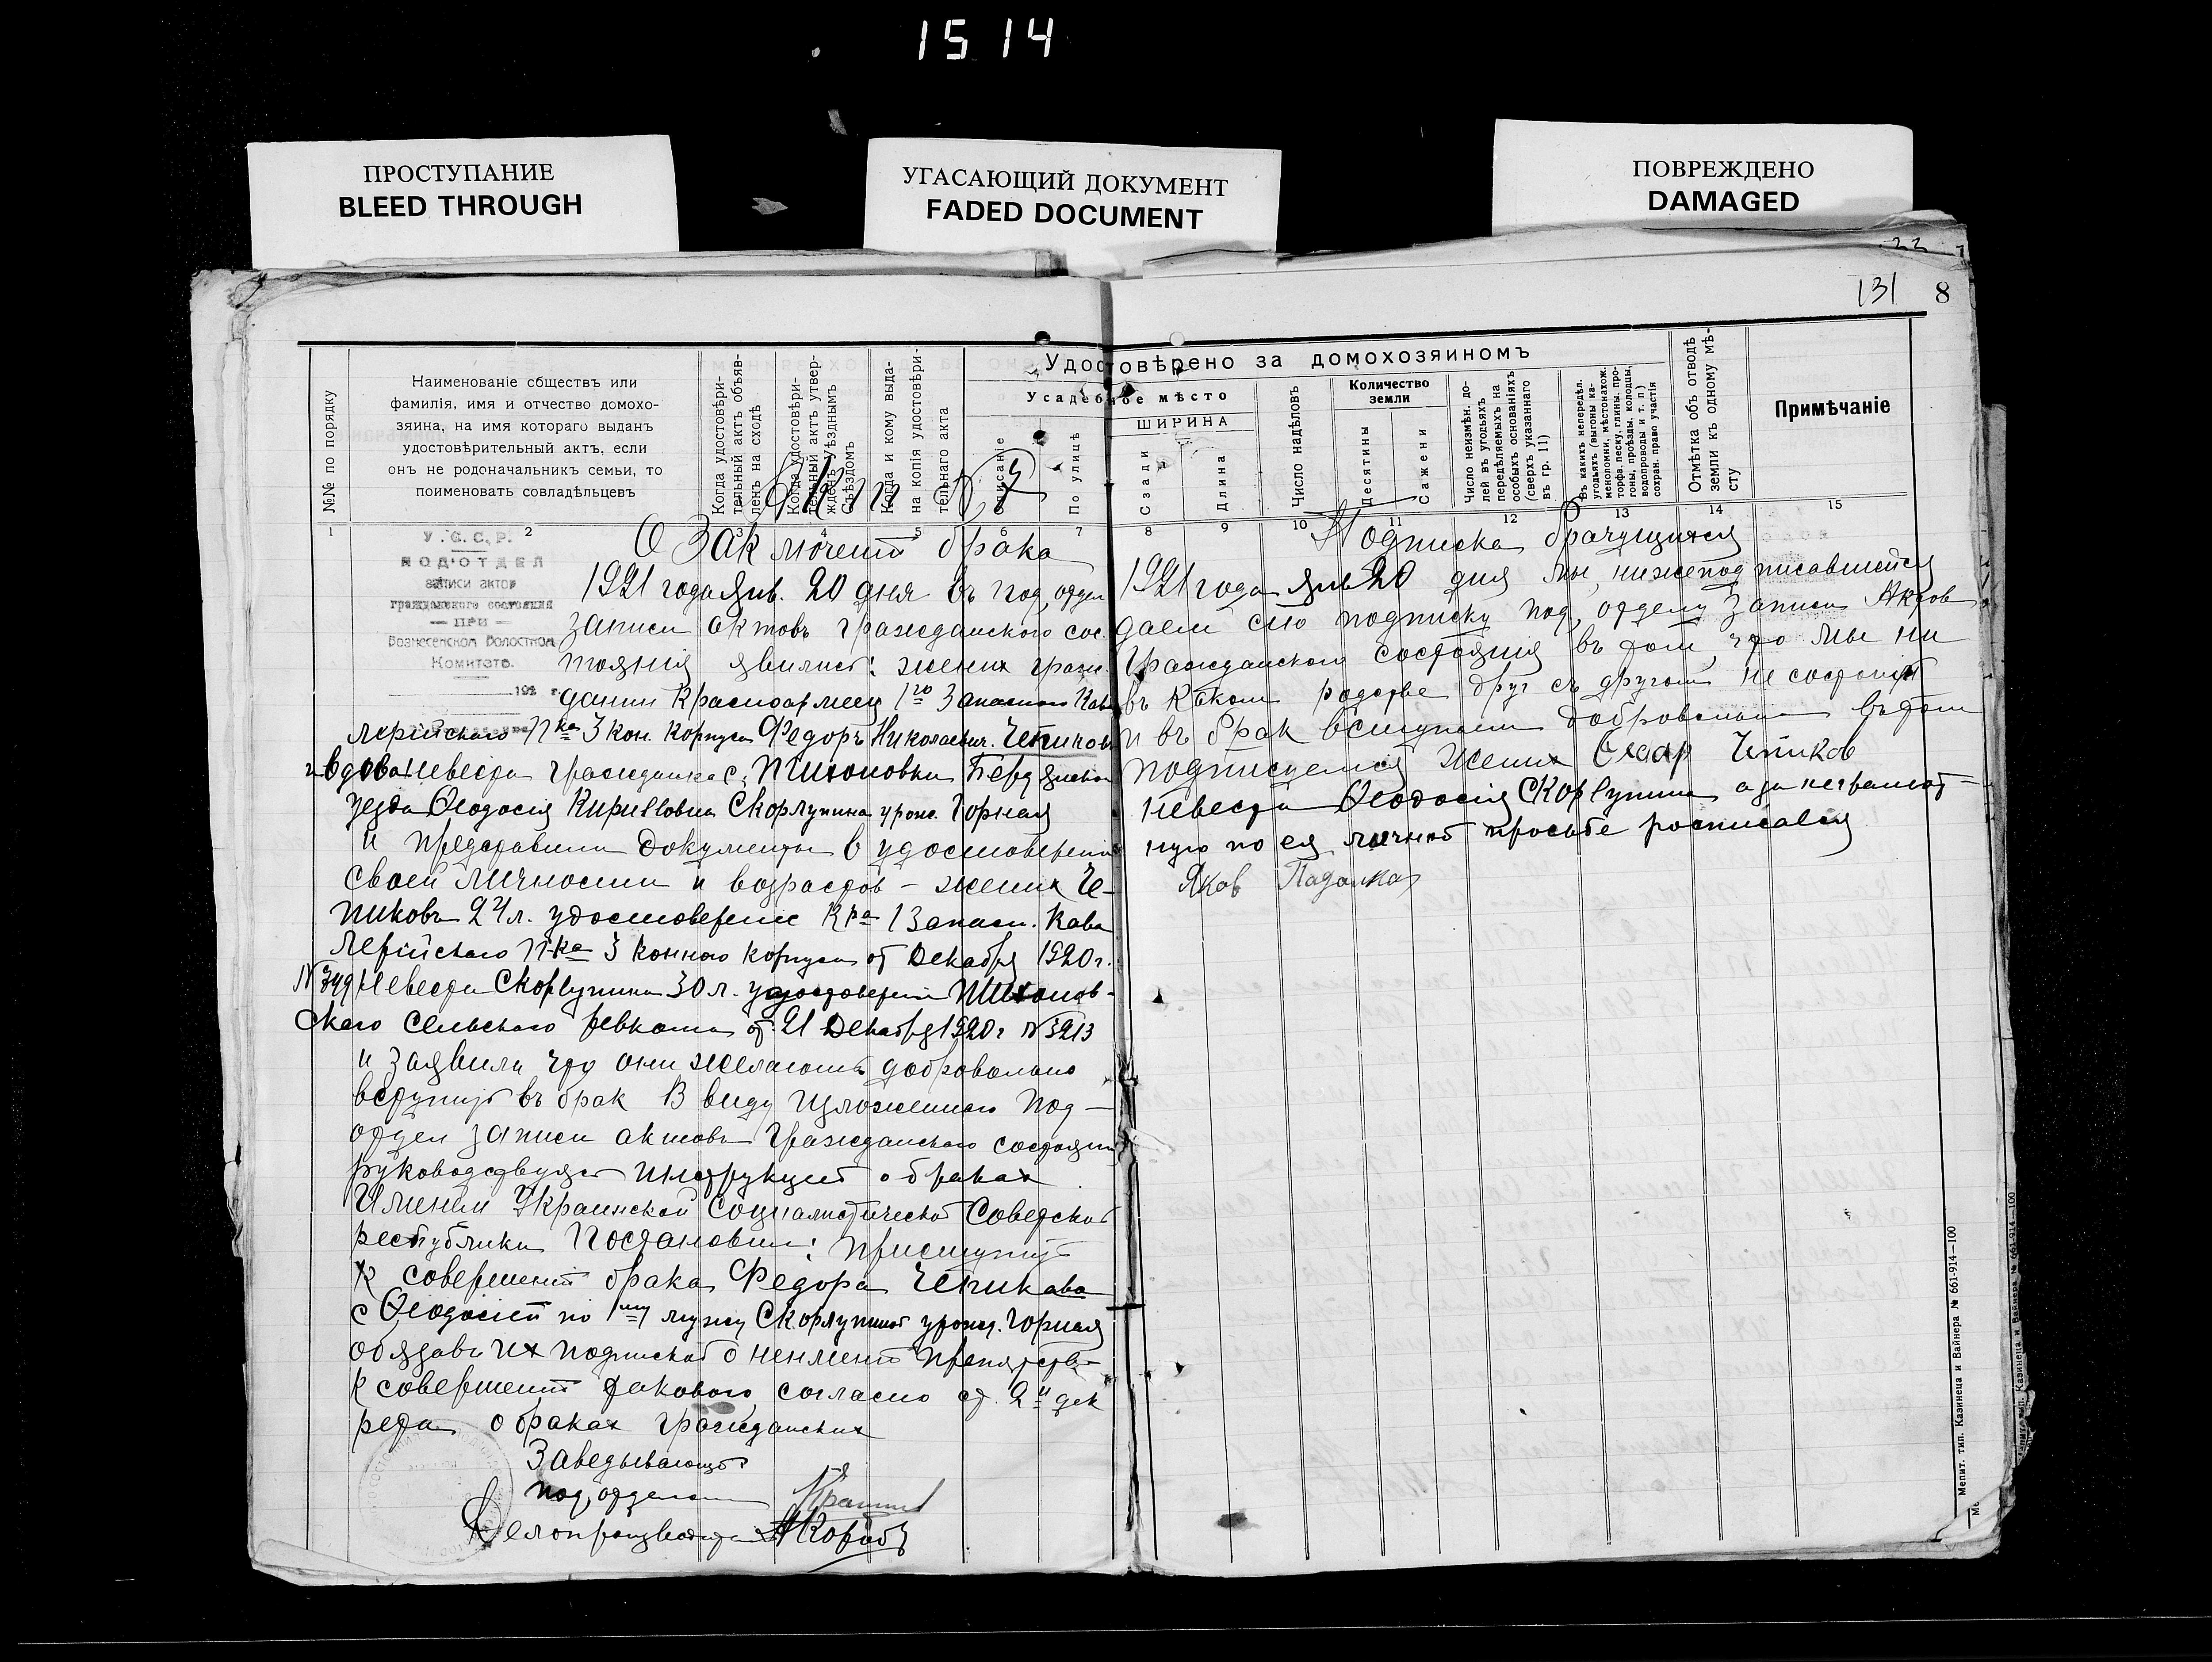 15 14
ПРОСТУПАНИЕ
BLEED THROUGH
УГАСАЮЩИЙ ДОКУМЕНТ
FADED DOCUMENT
ПОВРЕЖДЕНО
DAMAGED
22
131 8
№№ по порядку
Наименованіе обществъ или
фамилія, имя и отчество домохо-
зяина, на имя котораго выданъ
удостовѣрительный актъ, если
онъ не родоначальникъ семьи, то
поименовать совладѣльцевъ
Когда удостовѣри-
тельный актъ объяв-
ленъ на сходѣ
Когда удостовѣри-
тельный актъ утвер-
жденъ уѣзднымъ
Съѣздомъ
Когда и кому выда-
на копія удостовѣри-
тельнаго акта
Удостовѣрено за домохозяиномъ
Усадебное мѣсто
Описаніе
По улицѣ
ШИРИНА
Сзади
Длина
Число надѣловъ
Количество
земли
Десятины
Сажени
Число неизмѣн. до-
лей въ угодьяхъ
передѣляемыхъ на
особыхъ основаніяхъ
(сверхъ указаннаго
въ гр. 11)
Въ какихъ непередѣл.
угодьяхъ (выгоны ка-
меноломни, мѣстонахож.
торфа, песку, глины, про-
гоны, проѣзды, колодцы,
водопроводы и т. п.)
сохран. право участія
Отмѣтка объ отводѣ
земли къ одному мѣ-
сту
Примѣчаніе
1 2 3 4 5 6 7 8 9 10 11 12 13 14 15
У. С. С. Р.
ПОДОТДЕЛ
записи актов
гражданского состояния
— ПРИ —
Вознесенском Волостном
Комитете.
192 г.
Акт № 7
О Заключении брака
1921 года Янв. 20 дня въ под,отдел
записи актовъ Гражданского сос-
тояния явились: жених граж-
данин Красноармеец 1го Запасного Кава
лерійского П-ка 3 кон. Корпуса Федоръ Николаевич. Чепиков
и вдова невеста гражданка с. Тихоновки Бердянского
уезда Феодосия Кирилловна Скорлупина урож. Горная
и представили документы в удостоверение
своей личности и возрастов — жених Че-
пиковъ 24 л. удостоверение Кра 1 Запасн. Кава
лерійского П-ка 3 конного корпуса от Декабря 1920 г.
№ 349 Невеста Скорлупина 30 л. удостоверение Тихонов-
ского сельского ревкома от 21 Декабря 1920 г № 3213
и заявили что они желають добровольно
вступить въ брак В виду изложенного Под-
отдел записи актовъ Гражданского состояния
руководствуясь инструкцией о браках
Именем Украинской Социалистической Советской
республики Постановил: приступить
к совершению брака Федора Чепикова
с Феодосией по 1му мужу Скорлупиной урожд. Горная
обязавъ их подпиской о неимении препятств-
к совершению такового, согласно ст. 2й дек
рета о браках гражданских
Заведывающий
под,отделом
Делопроизводитель АКоробъ
Подписка брачущихся
1921 года Янв 20 дня Мы, нижеподписавшиеся
даем сию подписку под, отделу Записи Актов
Гражданского состояния въ том, что мы ни
въ каком родстве друг съ другом не состоим
и въ брак вступаем добровольно въ том
подписуемся жених Феодр Чепиков
невеста Феодосия Скорлупина а за неграмот-
ную по ея личной просьбе росписался
Яков Падалка
Мелит. тип. Казинеца и Вайнера № 661-914—100
Мелит. тип. Казинеца и Вайнера № 661-914—100